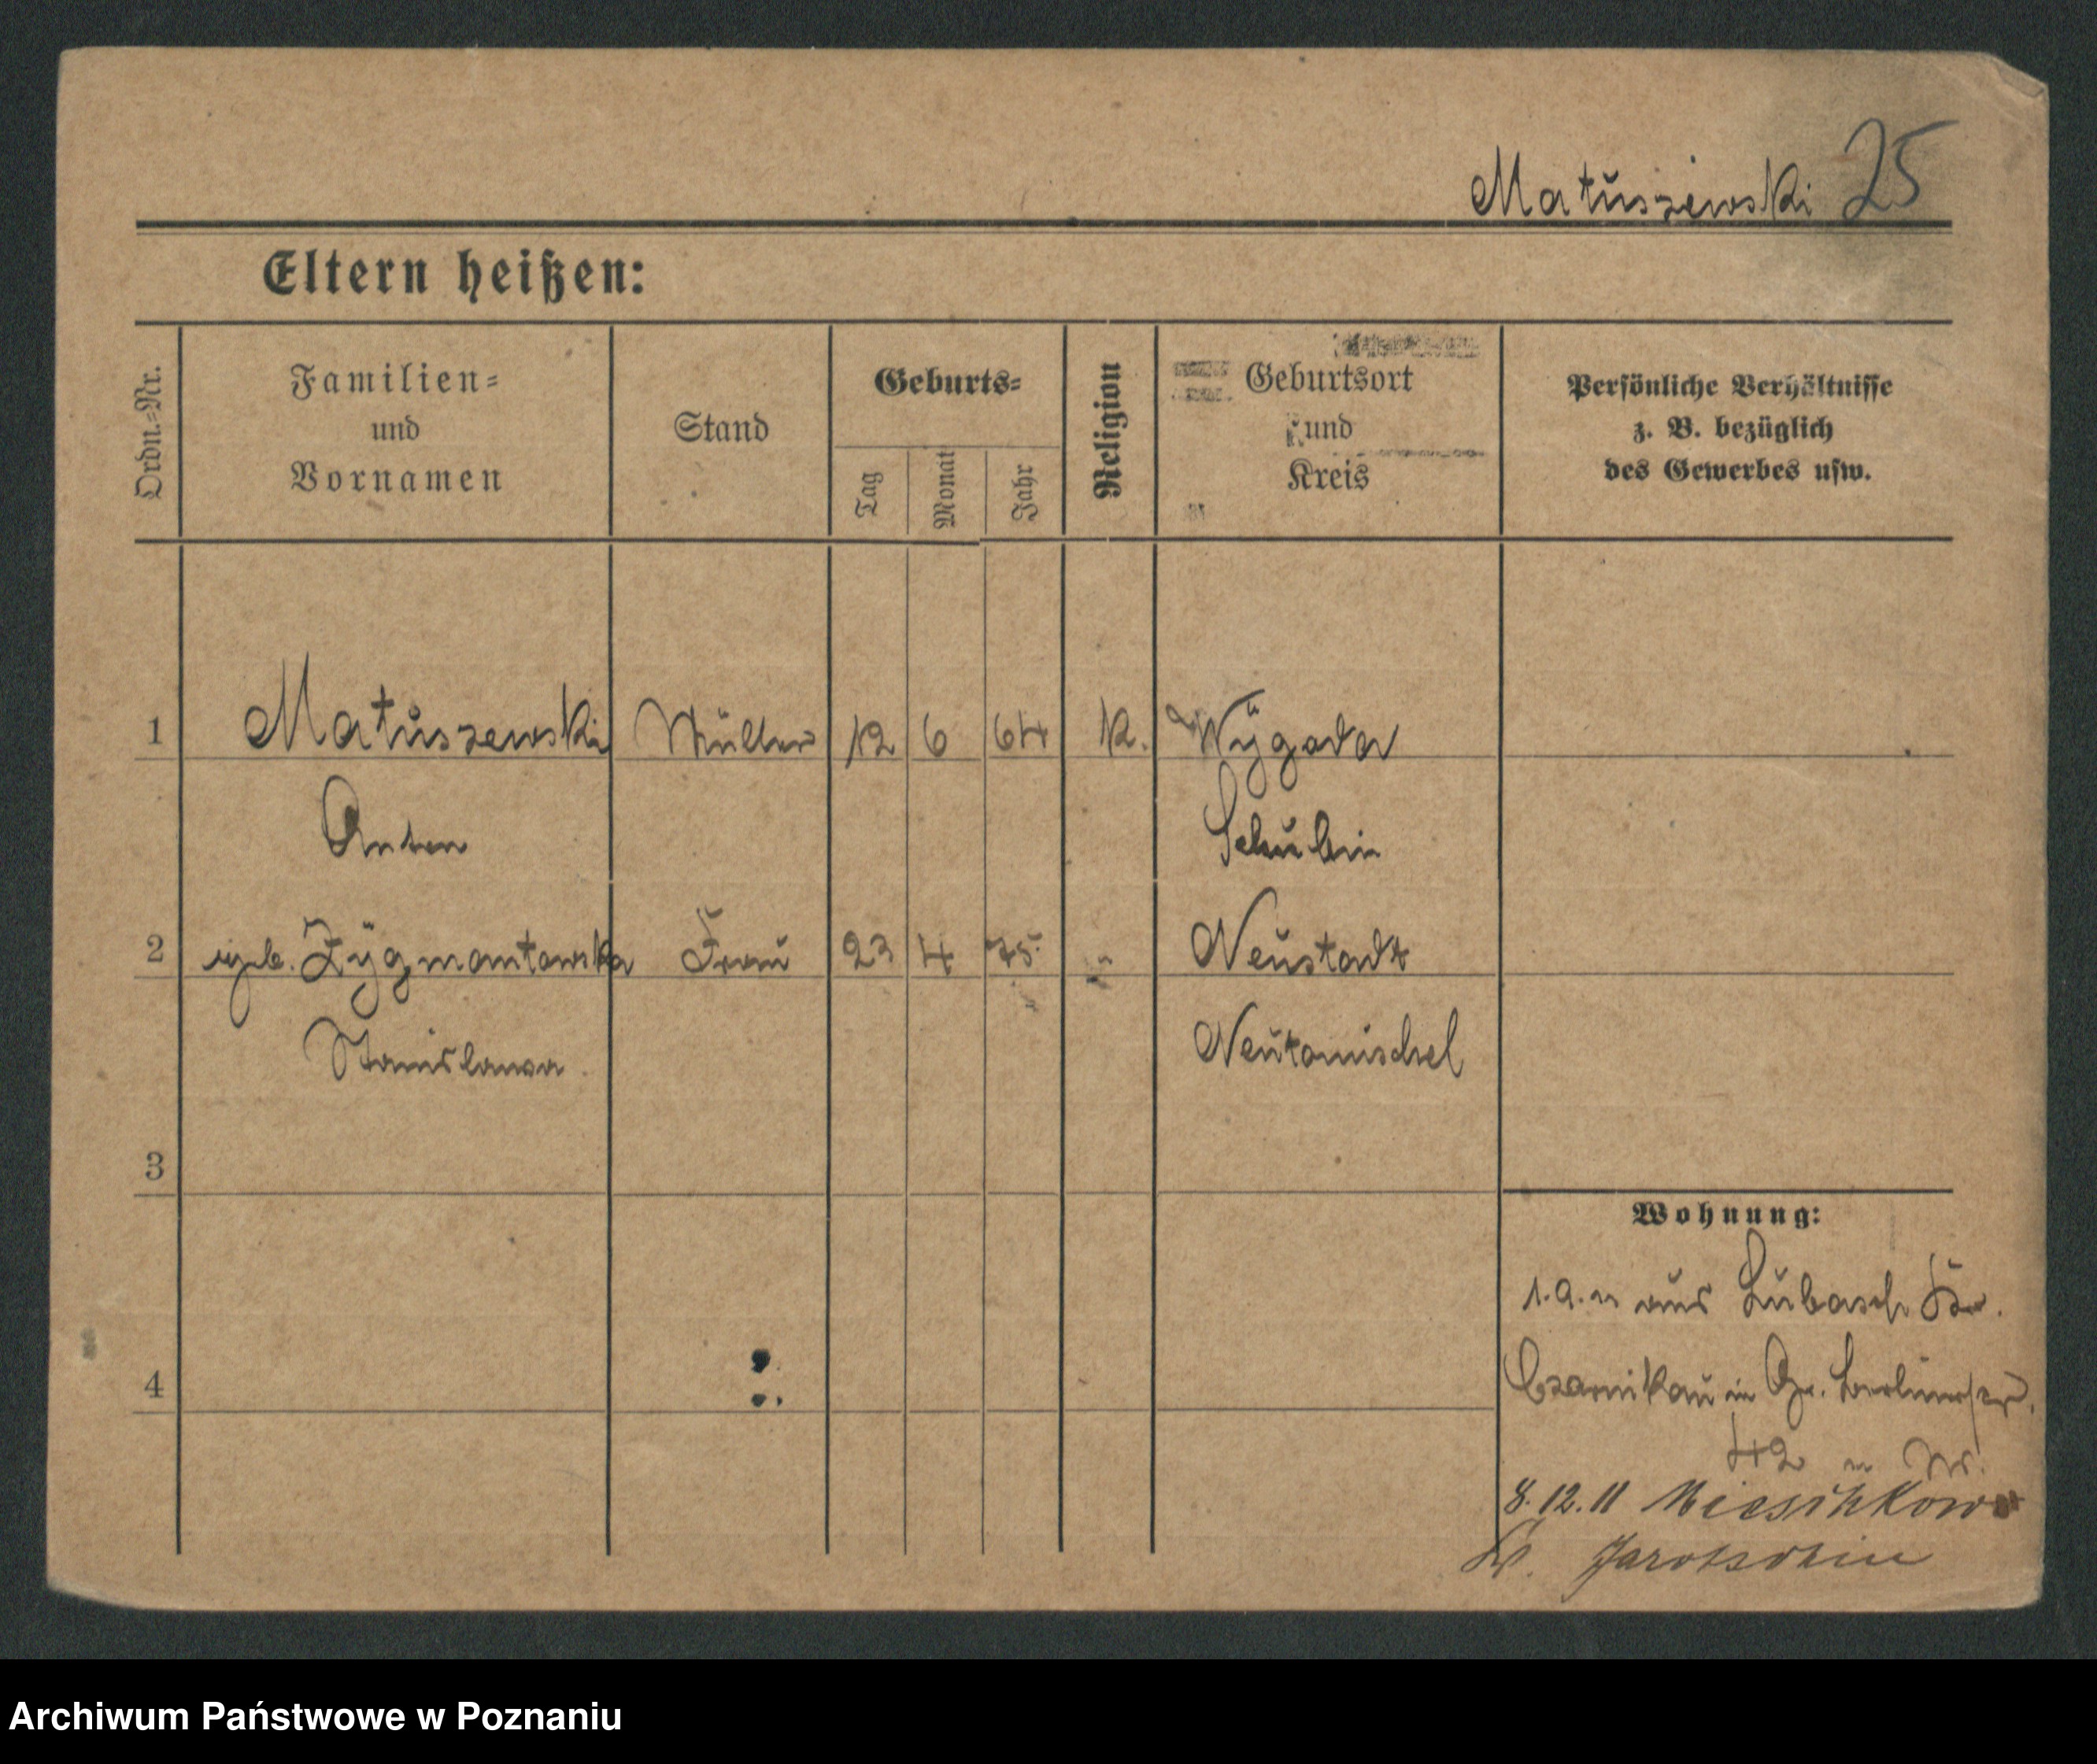 Matuszewski 25
Eltern heißen:
Ordn.-Nr.
Familien-
und
Vornamen
Stand
Geburts-
Tag
Monat
Jahr
Religion
Geburtsort
und
Kreis
Persönliche Verhältnisse
z. B. bezüglich
des Gewerbes usw.
1 Matuszewski Müller 12 6 64 K. Wygoda
Anton Schubin
2 geb. Zygmantowska Frau 23 4 75 " Neustadt
Stanislawa Neutomischel
3
Wohnung:
aus Lubasch Kr.
4 Czarnikau in Gr. Berlinerstr.
42
8.12.11 Mieschkow
Kr. Jarotschin
Archiwum Państwowe w Poznaniu